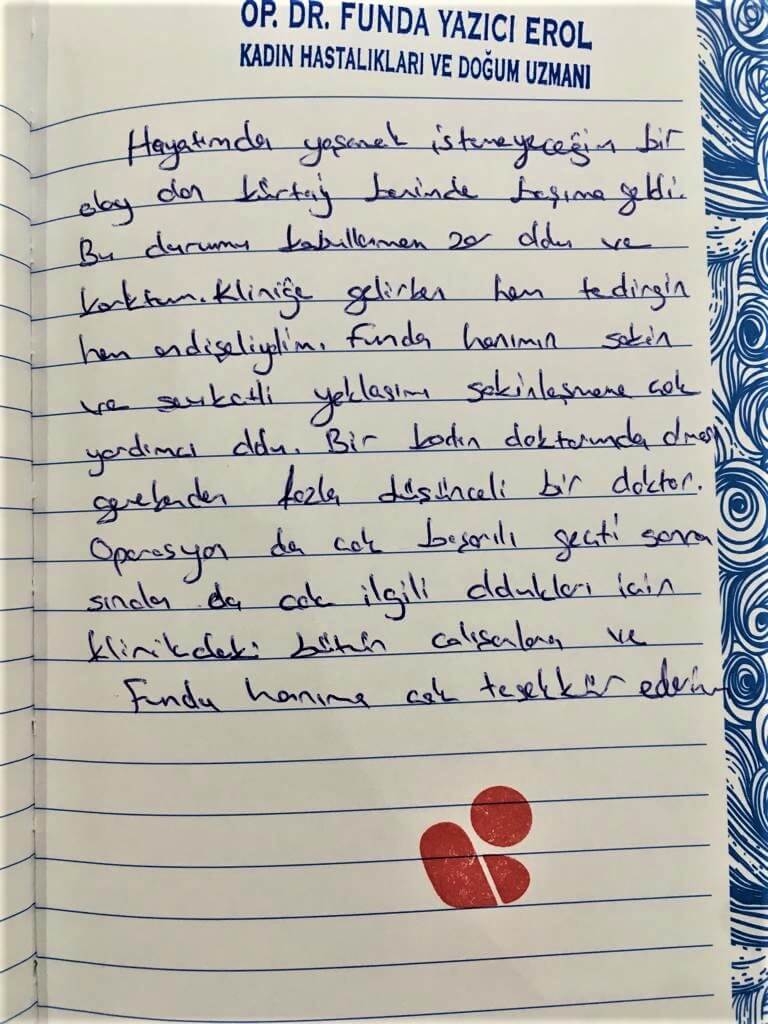 OP. DR. FUNDA YAZICI EROL
KADIN HASTALIKLARI VE DOĞUM UZMANI
Hayatımda yaşamak istemeyeceğim bir
olay olan kürtaj benimde başıma geldi.
Bu durumu kabullenmem zor oldu ve
korktum. Kliniğe gelirken hem tedirgin
hem endişeliydim. Funda hanımın sakin
ve şevkatli yaklaşımı sakinleşmeme çok
yardımcı oldu. Bir kadın doktorunda olması
gerekenden fazla düşünceli bir doktor.
Operasyon da çok başarılı geçti sonra
sında da çok ilgili oldukları için
klinikdeki bütün çalışanlara ve
Funda hanıma çok teşekkür ederim